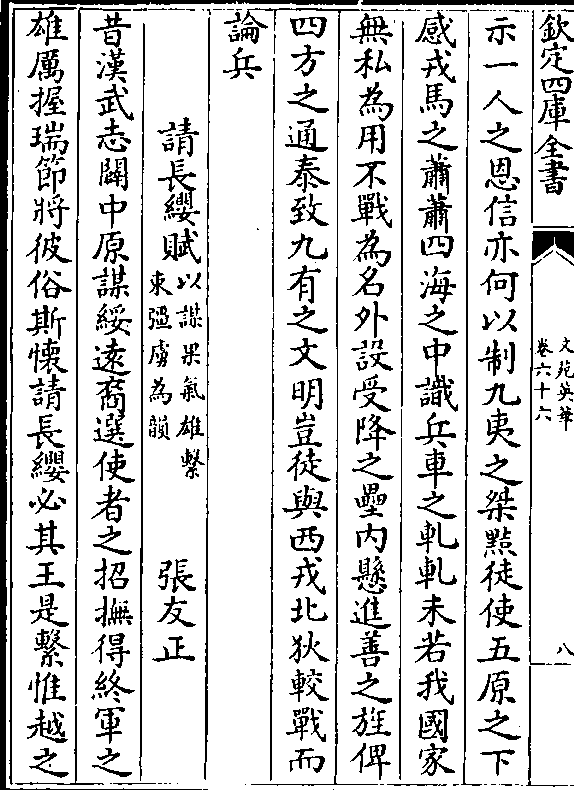 欽定四庫全書
文苑英華
卷六十六
八
示一人之恩信亦何以制九夷之桀黠徒使五原之下
感戎馬之蕭蕭四海之中識兵車之軋軋未若我國家
無私為用不戰為名外設受降之壘内懸進善之旌俾
四方之通泰致九有之文明豈徒與西戎北狄較戰而
論兵
請長纓賦
以謀果氣雄繫
束彊虜為韻
張友正
昔漢武志闢中原謀綏遠裔選使者之招撫得終軍之
雄厲握瑞節將彼俗斯懷請長纓必其王是繫惟越之